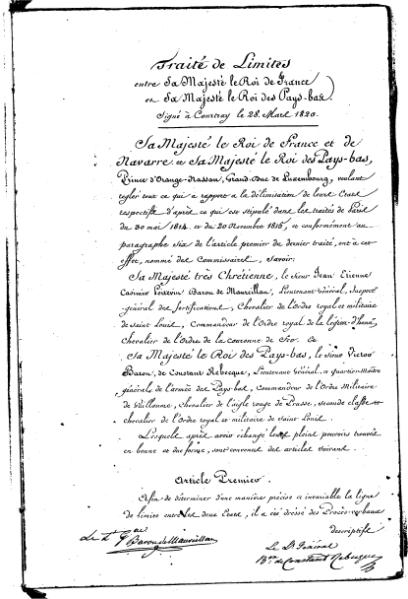 Traité de Limites
entre Sa Majesté le Roi de France
et Sa Majesté le Roi des Pays-bas
Signé à Courtray le 28. Mars 1820.
Sa Majesté le Roi de France et de
Navarre et Sa Majesté le Roi des Pays-bas,
Prince d'Orange-Nassau, Grand-Duc de Luxembourg, voulant
régler tout ce qui a rapport à la délimitation de leurs Etats
respectifs d'après ce qui est stipulé dans les traités de Paris
du 30 mai 1814. et du 20 Novembre 1815, et conformément au
paragraphe six de l'article premier du dernier traité, ont à cet
effet, nommé des Commissaires, savoir:
Sa Majesté très Chrétienne, le Sieur Jean Etienne
Casimir Poitevin Baron de Maureillan, Lieutenant Général, Inspecteur
général des fortifications, Chevalier de l'Ordre royal et militaire
de Saint Louis, Commandeur de l'Ordre royal de la légion-d'honneur,
Chevalier de l'Ordre de la couronne de Fer. &
Sa Majesté le Roi des Pays-bas, le Sieur Victor
Baron, de Constant Rebecque, Lieutenant Général, quartier-Maître
général de l'armée des Pays-bas, Commandeur de l'Ordre Militaire
de Guillaume, Chevalier de l'aigle rouge de Prusse, seconde classe et
chevalier de l'Ordre royal et militaire de Saint Louis.
Lesquels après avoir échangé leurs pleins pouvoirs trouvés
en bonne et due forme, sont convenus des articles suivants.
Article Premier.
Afin de déterminer d'une manière précise et invariable la ligne
de limites entre les deux Etats, il a été dressé des Procès-verbaux
descriptifs
Le Lt Gal Baron de Maureillan
Le Lt Général
Bon de Constant Rebecque